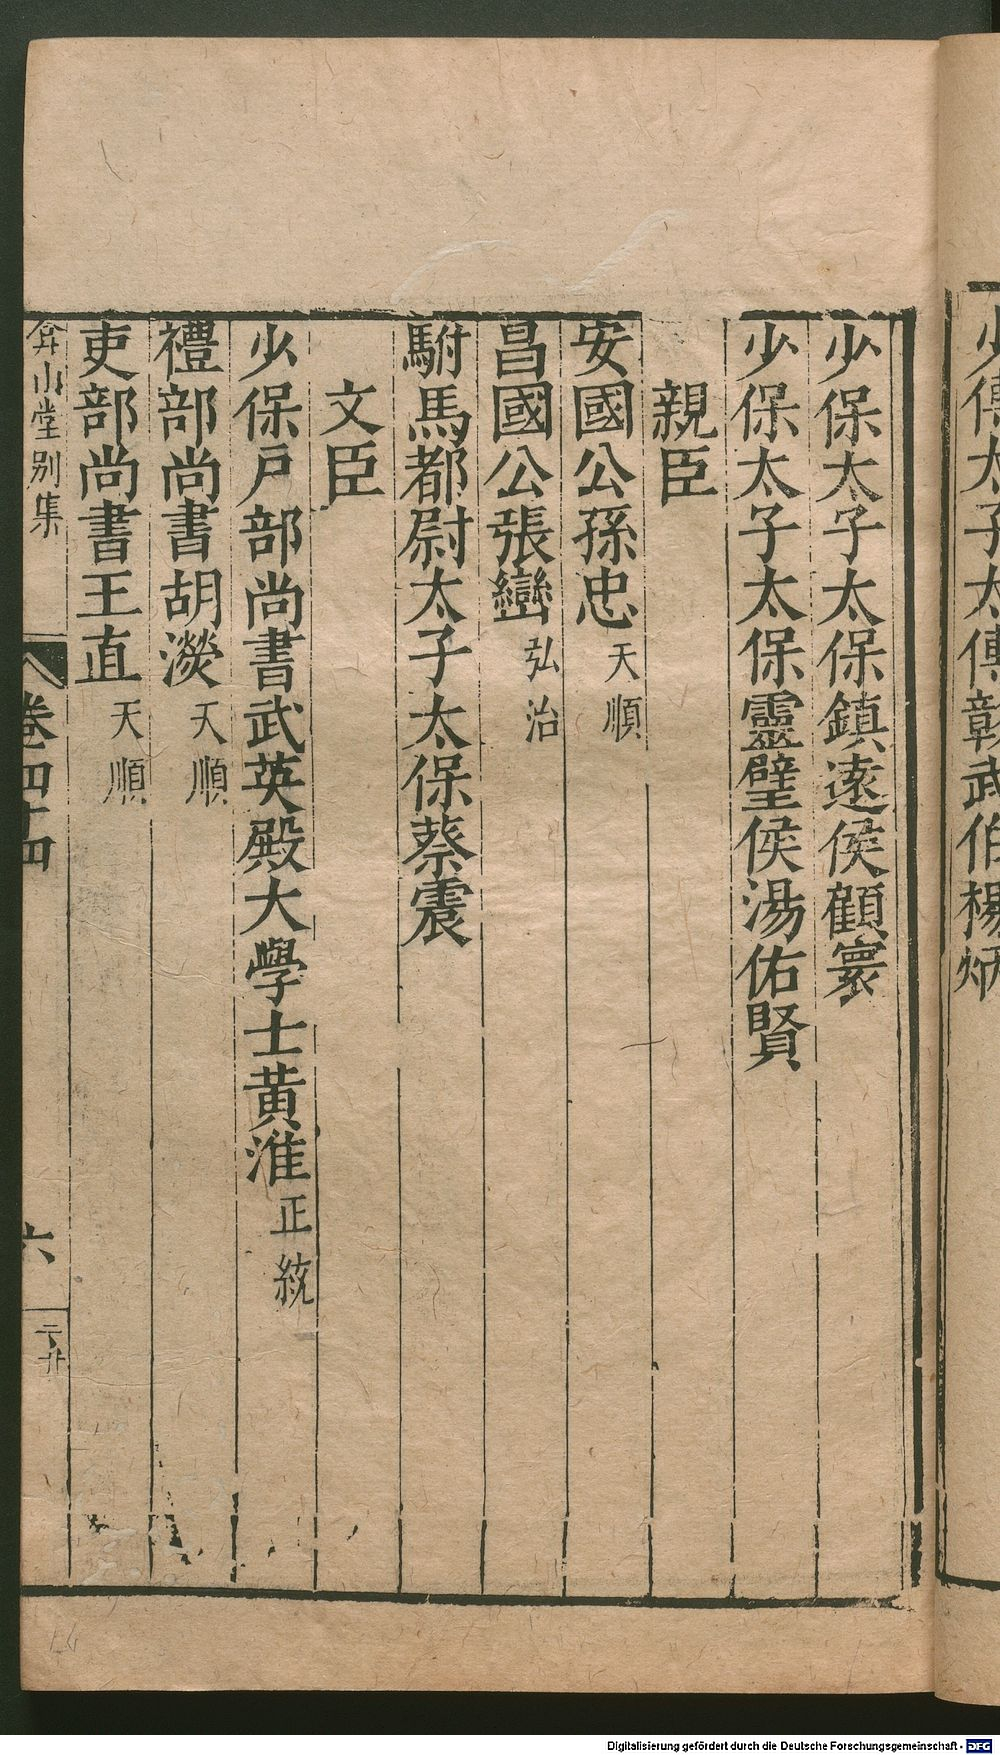 少保太子太保鎮遠侯顧寰
少保太子太保靈璧侯湯佑賢
親臣
安國公孫忠天順
昌國公張巒弘治
駙馬都尉太子太保蔡震
文臣
少保戶部尚書武英殿大學士黃淮正統
禮部尚書胡濙天順
吏部尚書王直天順
弇山堂別集
卷四十四
六
少傅太子太傅彰武伯楊炳
Digitalisierung gefördert durch die Deutsche Forschungsgemeinschaft - DFG